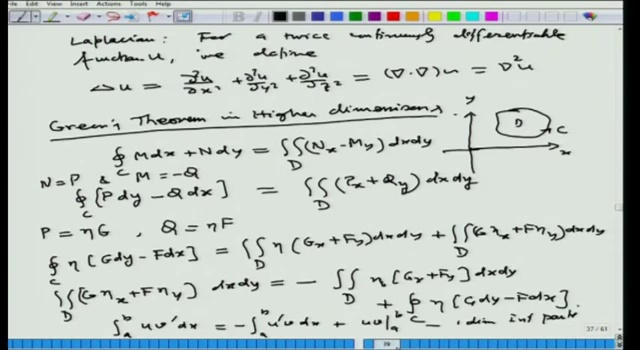 File Edit View Insert Actions Tools Help
Laplacian : For a twice continuously differentiable
function u, we define
Δu = ∂²u/∂x² + ∂²u/∂y² + ∂²u/∂z² = (∇·∇)u = ∇²u
Green's Theorem in Higher dimensions
∮_C Mdx + Ndy = ∬_D (N_x - M_y) dxdy
N = P & M = -Q
∮_C [Pdy - Qdx] = ∬_D (P_x + Q_y) dxdy
y D C x
P = ηG , Q = ηF
∮_C η[Gdy - Fdx] = ∬_D η(G_x + F_y)dxdy + ∬_D (Gη_x + Fη_y)dxdy
∬_D (Gη_x + Fη_y) dxdy = - ∬_D η[G_x + F_y]dxdy
+ ∮_C η[Gdy - Fdx].
∫_a^b uv'dx = -∫_a^b u'v dx + uv|_a^b - 1 dim int parts
37 / 61
39